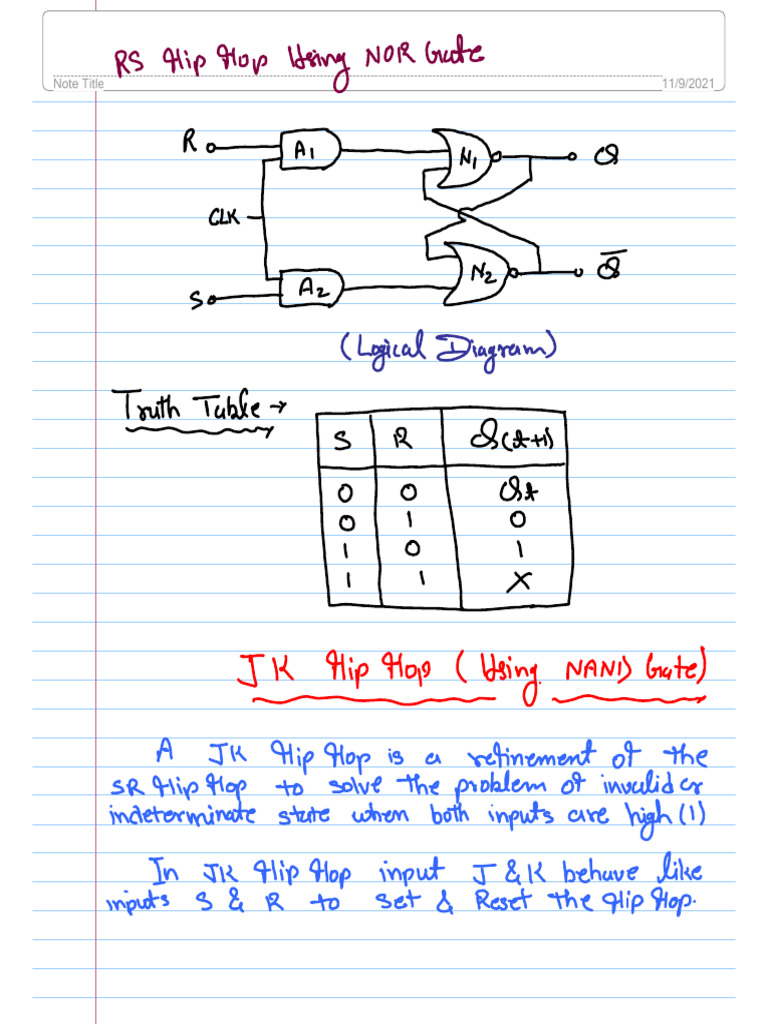 RS Flip Flop Using NOR Gate
Note Title
11/9/2021
R
A1
N1
Q
CLK
S
A2
N2
Q̅
(Logical Diagram)
Truth Table →
S R Q(t+1)
0 0 Qt
0 1 0
1 0 1
1 1 X
JK Flip Flop (Using NAND Gate)
A JK Flip Flop is a refinement of the
SR Flip Flop to solve the problem of invalid or
indeterminate state when both inputs are high (1)
In JK Flip Flop input J & K behave like
inputs S & R to set & Reset the Flip Flop.